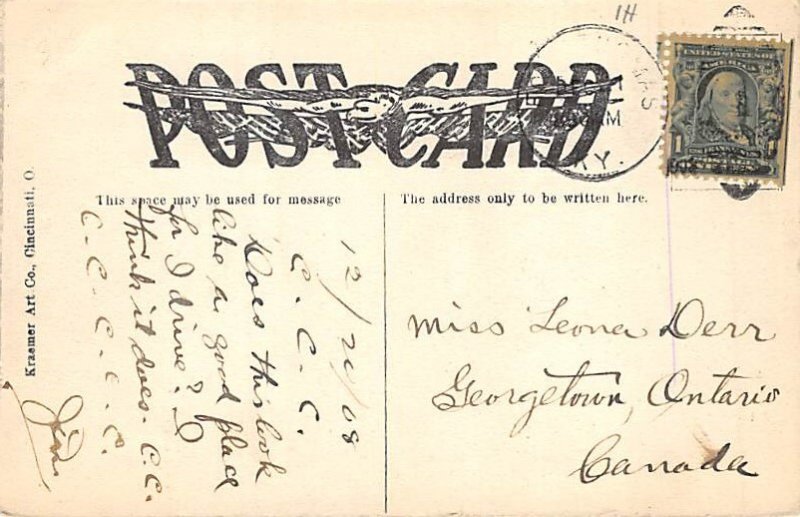 1H
POST CARD
KY.
UNITED STATES OF
AMERICA
1
This space may be used for message
The address only to be written here.
Kraemer Art Co., Cincinnati, O.
12/20/08
C. C. C.
Does this look
like a good place
for I drive? I
think it does. C.C.
C- C- C. C. C.
Jim.
Miss Leona Derr
Georgetown, Ontario
Canada